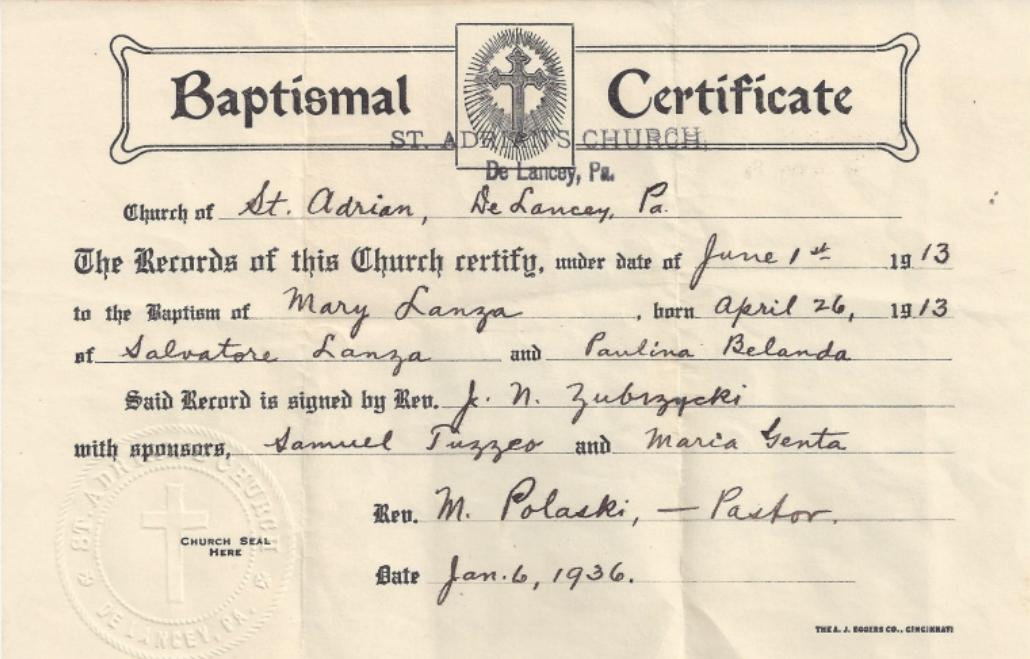 Baptismal Certificate
ST. ADRIAN'S CHURCH,
De Lancey, Pa.
Church of St. Adrian, De Lancey, Pa.
The Records of this Church certify, under date of June 1st 1913
to the Baptism of Mary Lanza, born April 26, 1913
of Salvatore Lanza and Paulina Belanda
Said Record is signed by Rev. J. N. Zubrzycki
with sponsors, Samuel Tuzzeo and Maria Genta
Rev. M. Polaski, — Pastor.
ST. ADRIAN'S CHURCH
DE LANCEY, PA.
CHURCH SEAL
HERE
Date Jan. 6, 1936.
THE A. J. EGGERS CO., CINCINNATI